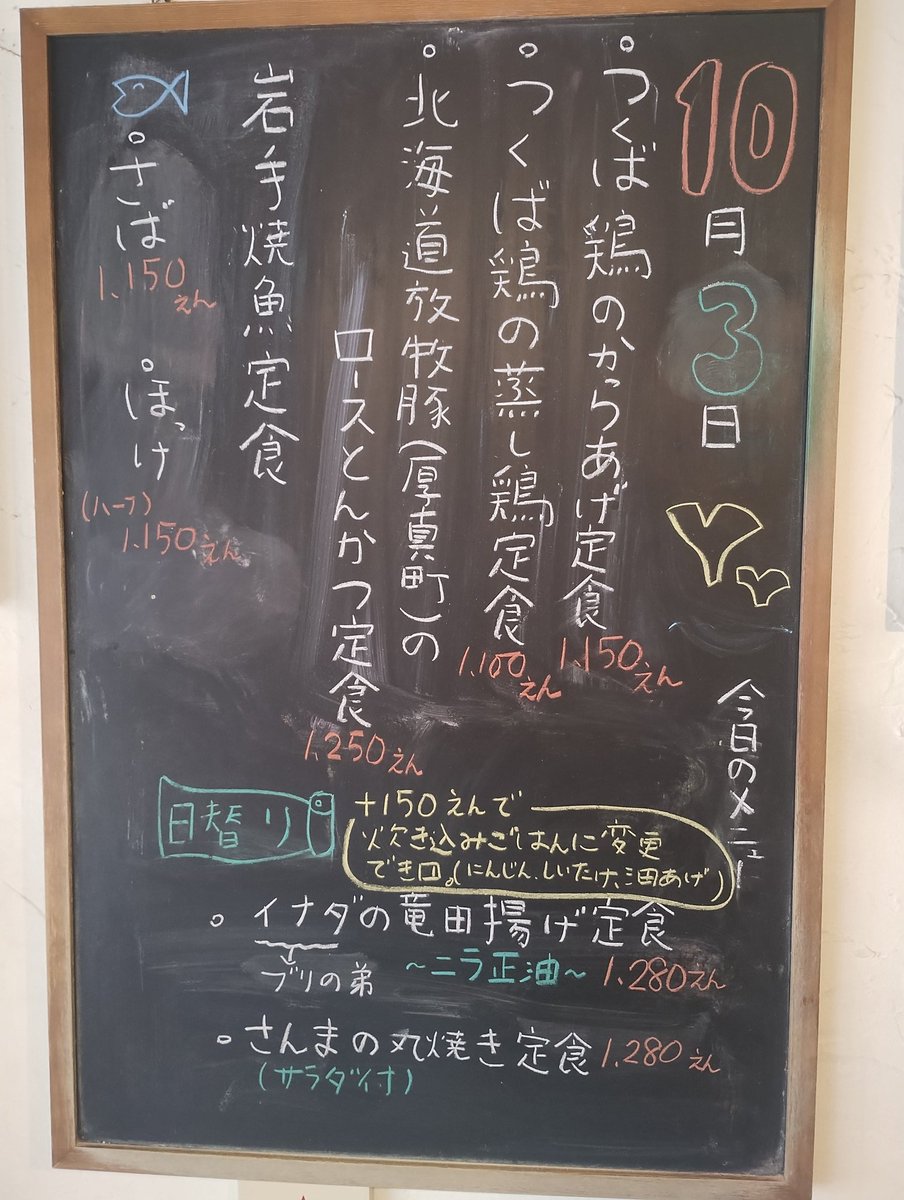 10月3日
今日のメニュー
つくば鶏のからあげ定食
1,150えん
つくば鶏の蒸し鶏定食
1,100えん
北海道放牧豚(厚真町)の
ロースとんかつ定食
1,250えん
岩手焼魚定食
さば
1,150えん
ほっけ
(ハーフ)
1,150えん
日替り
+150えんで
炊き込みごはんに変更
でき口。(にんじん、しいたけ、油あげ)
イナダの竜田揚げ定食
ブリの弟
~ニラ正油~
1,280えん
さんまの丸焼き定食 1,280えん
(サラダツイ寸)